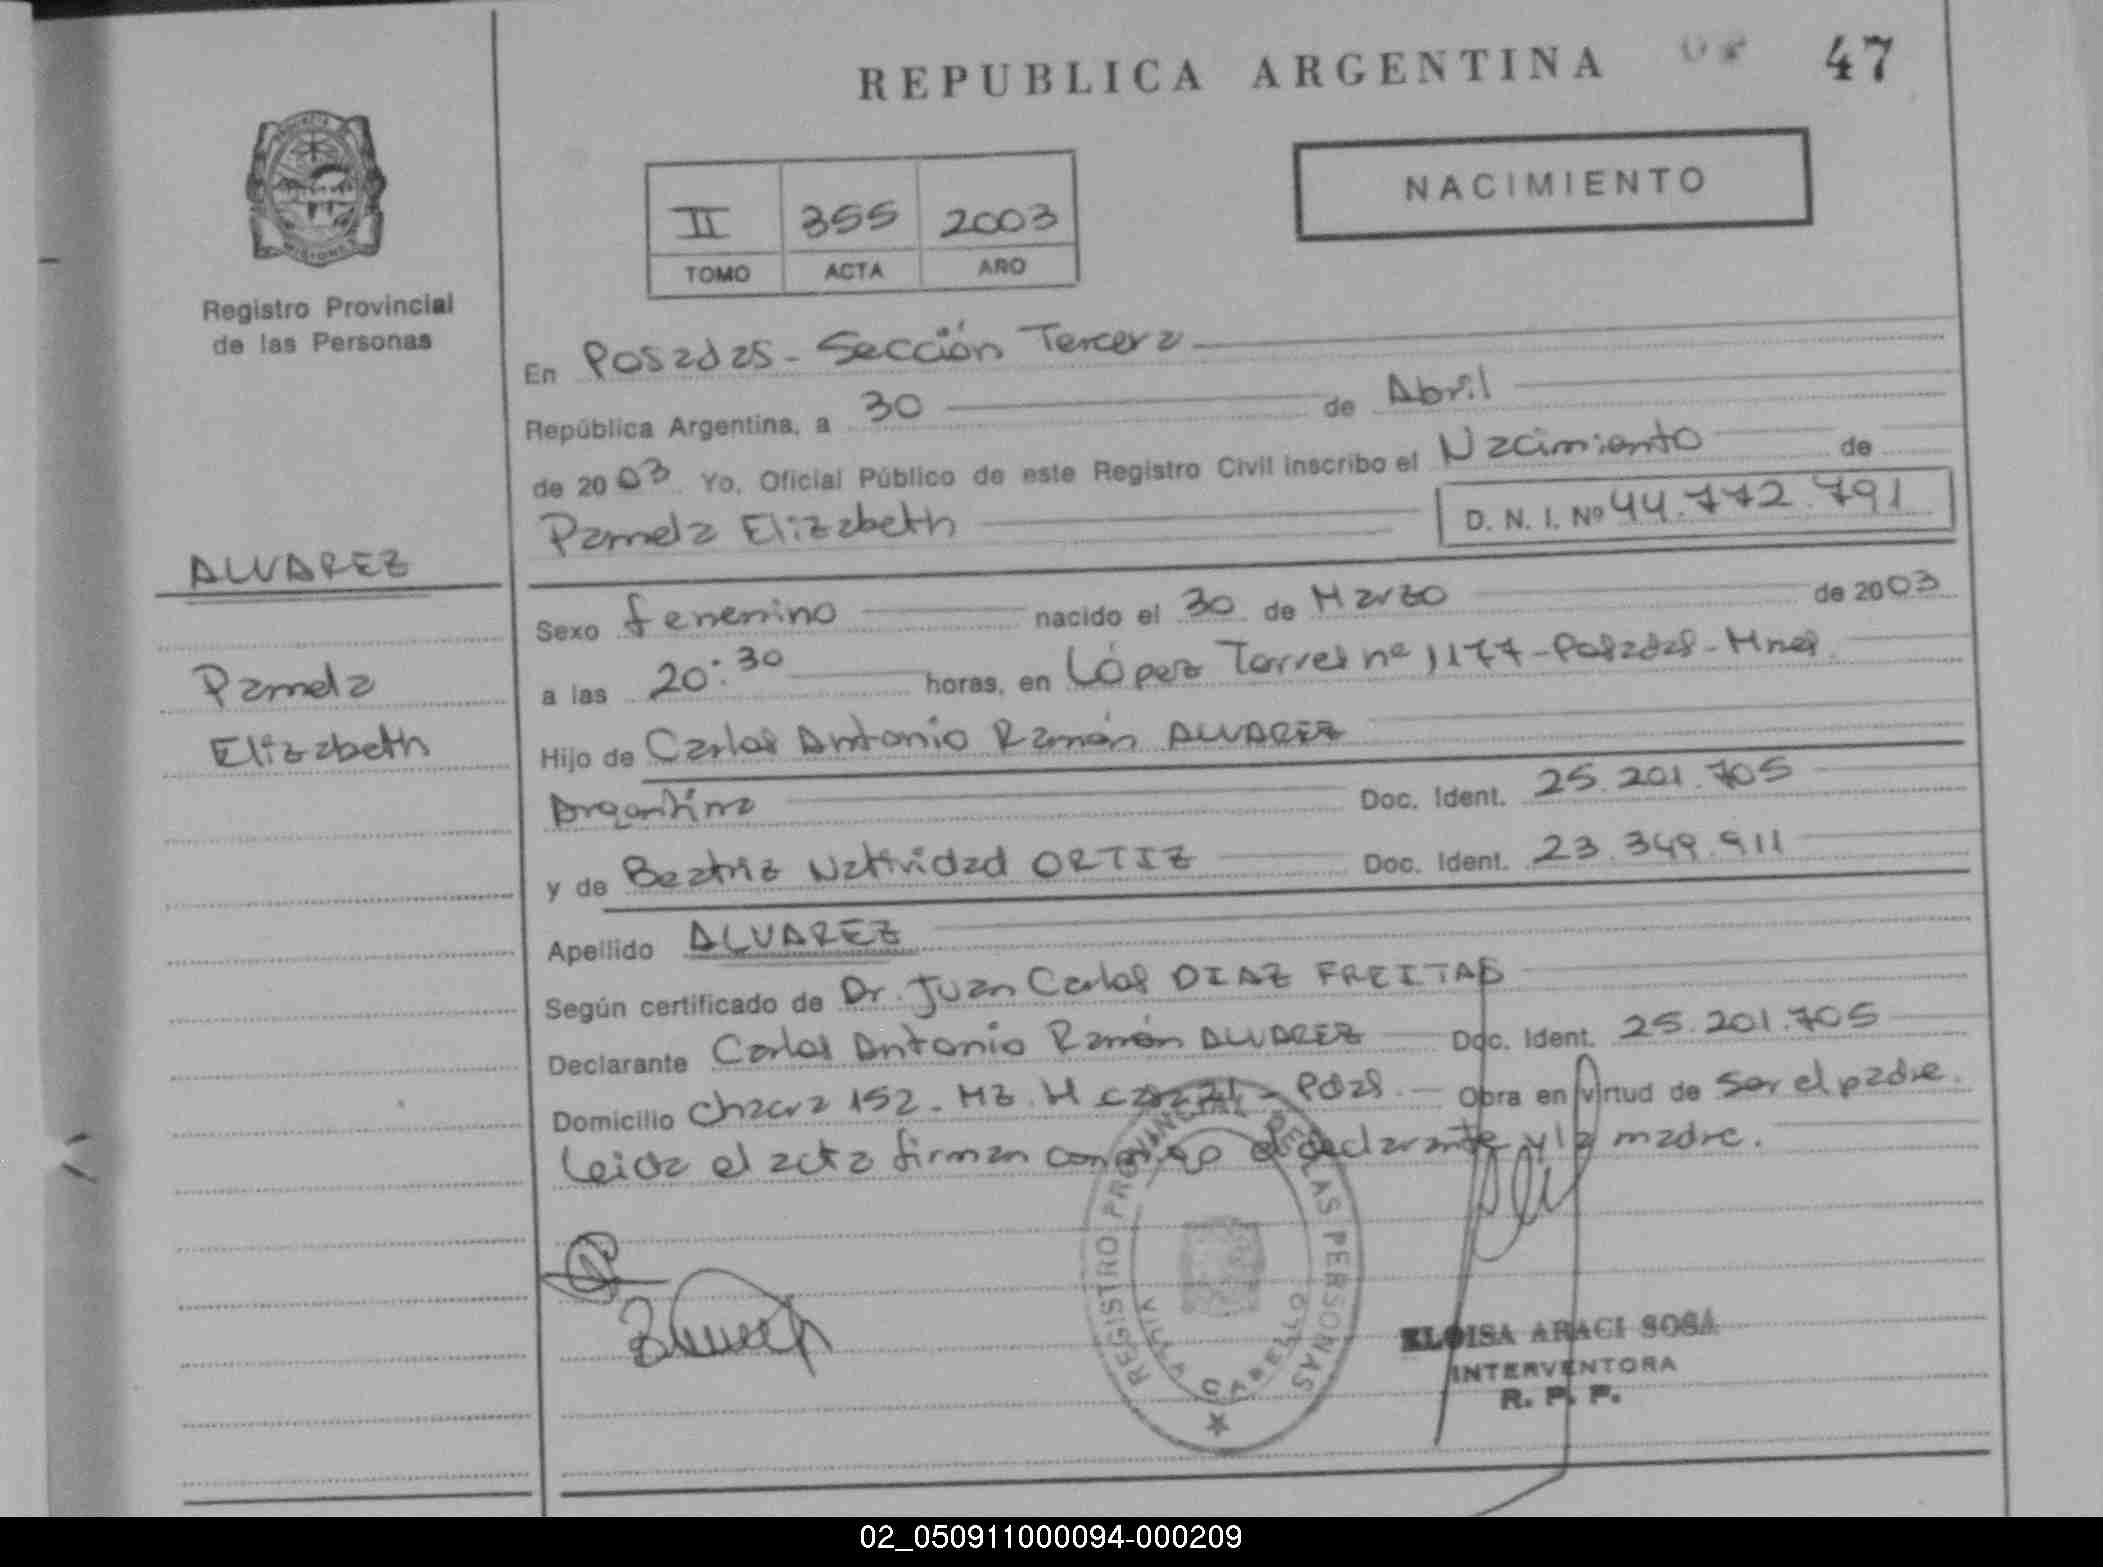 REPUBLICA ARGENTINA
47
NACIMIENTO
II 355 2003
TOMO ACTA AÑO
PROVINCIA DE MISIONES
Registro Provincial
de las Personas
En Posadas - Sección Tercera
República Argentina, a 30 de Abril
de 2003 Yo, Oficial Público de este Registro Civil inscribo el Nacimiento de
Pamela Elizabeth D. N. I. Nº 44.772.791
ALVAREZ
Pamela
Elizabeth
Sexo femenino nacido el 30 de Marzo de 2003
a las 20:30 horas, en López Torres nº 1177-Posadas-Mnes.
Hijo de Carlos Antonio Ramón ALVAREZ
Argentina Doc. Ident. 25.201.705
y de Beatriz Natividad ORTIZ Doc. Ident. 23.349.911
Apellido ALVAREZ
Según certificado de Dr. Juan Carlos DIAZ FREITAS
Declarante Carlos Antonio Ramón ALVAREZ Doc. Ident. 25.201.705
Domicilio Chacra 152. Mz. H - Pdas. Obra en virtud de Ser el padre.
Leida el acta firman conmigo el declarante y la madre.
REGISTRO PROVINCIAL DE LAS PERSONAS
VILLA CABELLO
ELOISA ARACI SOSA
INTERVENTORA
R. P. P.
02_050911000094-000209